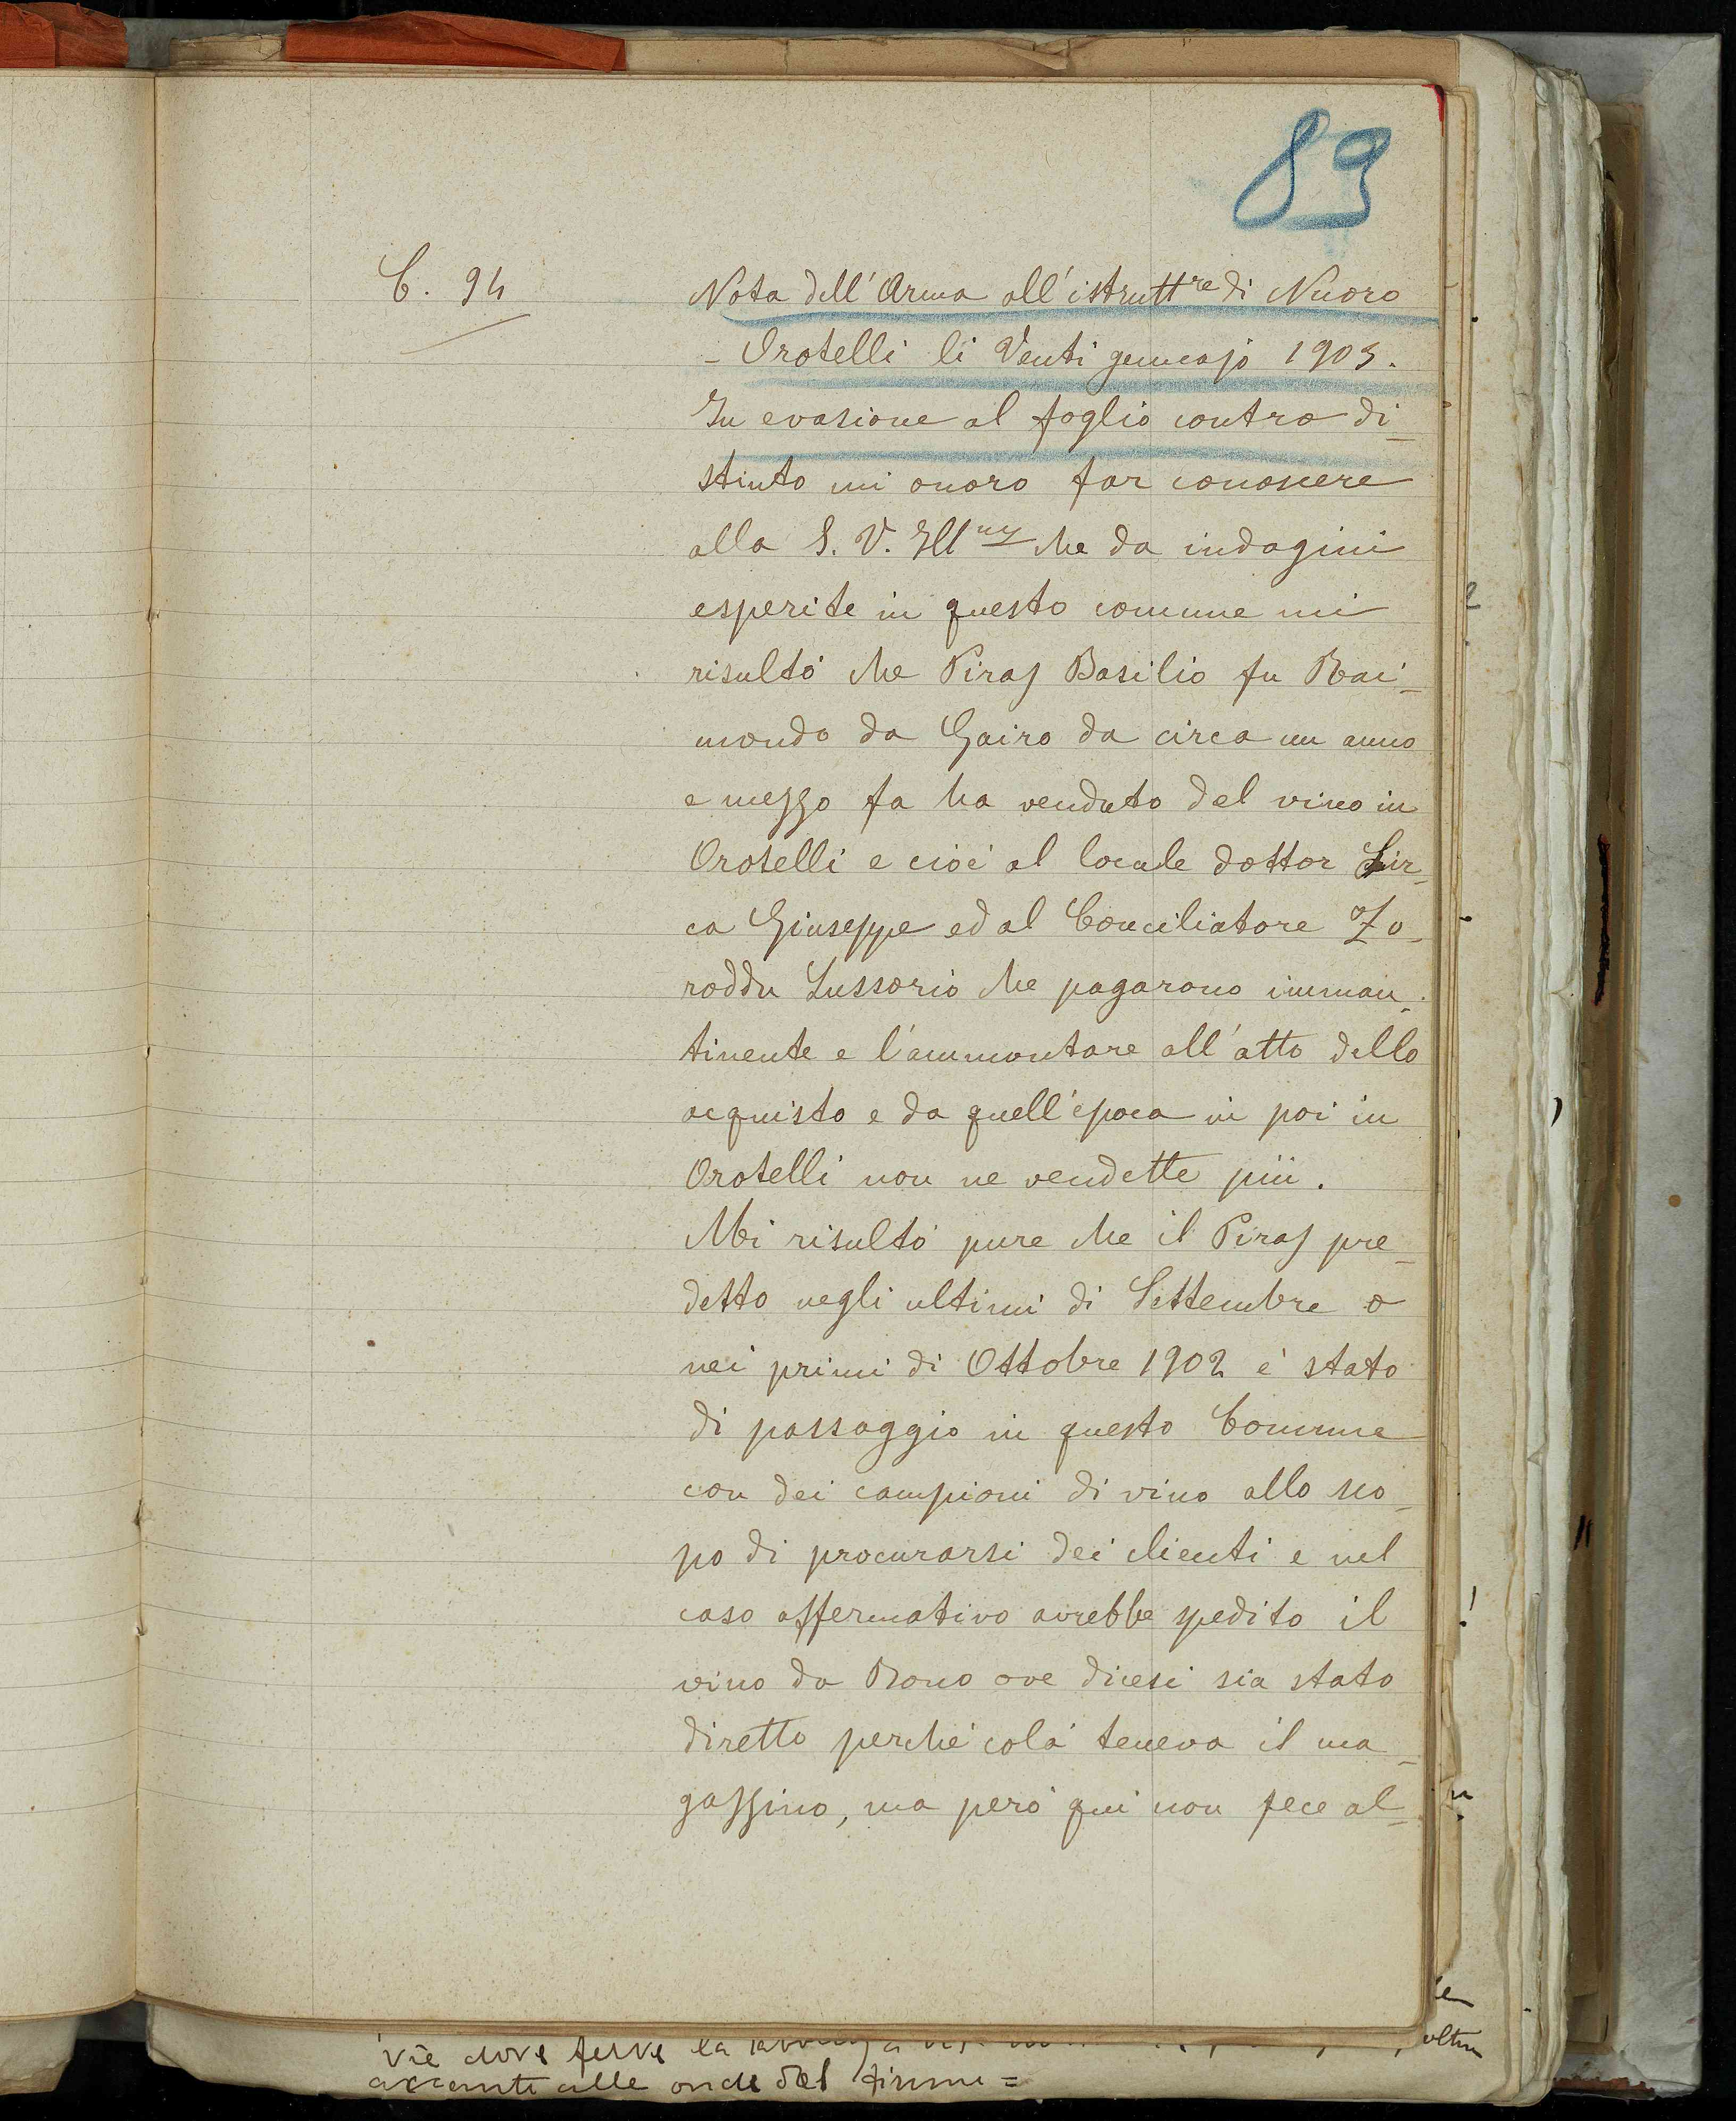 89
C. 94
Nota dell'Arma all'istrutt.re di Nuoro
- Orotelli li Venti gennajo 1903.
In evasione al foglio contro di-
stinto mi onoro far conoscere
alla S. V. Ill.ma che da indagini
esperite in questo comune mi
risultò che Piras Basilio fu Rai-
mondo da Gairo da circa un anno
e mezzo fa ha venduto del vino in
Orotelli e cioè al locale dottor Sir-
ca Giuseppe ed al Conciliatore Zo-
roddu Lussorio che pagarono imman-
tinente e l'ammontare all'atto dello
acquisto e da quell'epoca in poi in
Orotelli non ne vendette più.
Mi risultò pure che il Piras pre-
detto negli ultimi di Settembre o
nei primi di Ottobre 1902 è stato
di passaggio in questo Comune
con dei campioni di vino allo sco-
po di procurarsi dei clienti e nel
caso affermativo avrebbe spedito il
vino da Bono ove dicesi sia stato
diretto perchè colà teneva il ma-
gazzino, ma però qui non fece al-
vie dove ferve la
alle onde del fiume =